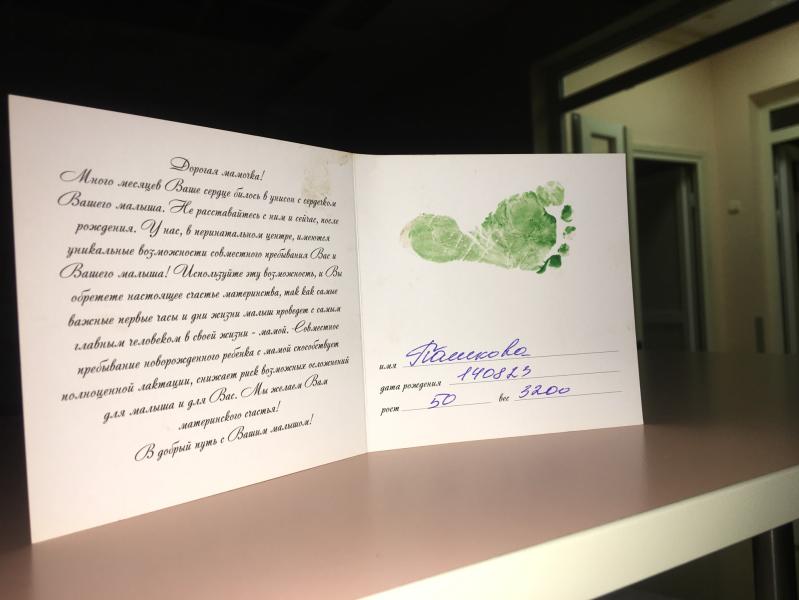 Дорогая мамочка!
Много месяцев Ваше сердце билось в унисон с сердечком
Вашего малыша. Не расставайтесь с ним и сейчас, после
рождения. У нас, в перинатальном центре, имеются
уникальные возможности совместного пребывания Вас и
Вашего малыша! Используйте эту возможность, и Вы
обретете настоящее счастье материнства, так как самые
важные первые часы и дни жизни малыш проведет с самым
главным человеком в своей жизни - мамой. Совместное
пребывание новорожденного ребенка с мамой способствует
полноценной лактации, снижает риск возможных осложнений
для малыша и для Вас. Мы желаем Вам
материнского счастья!
В добрый путь с Вашим малышом!
имя Пашкова
дата рождения 140823
рост 50 вес 3200